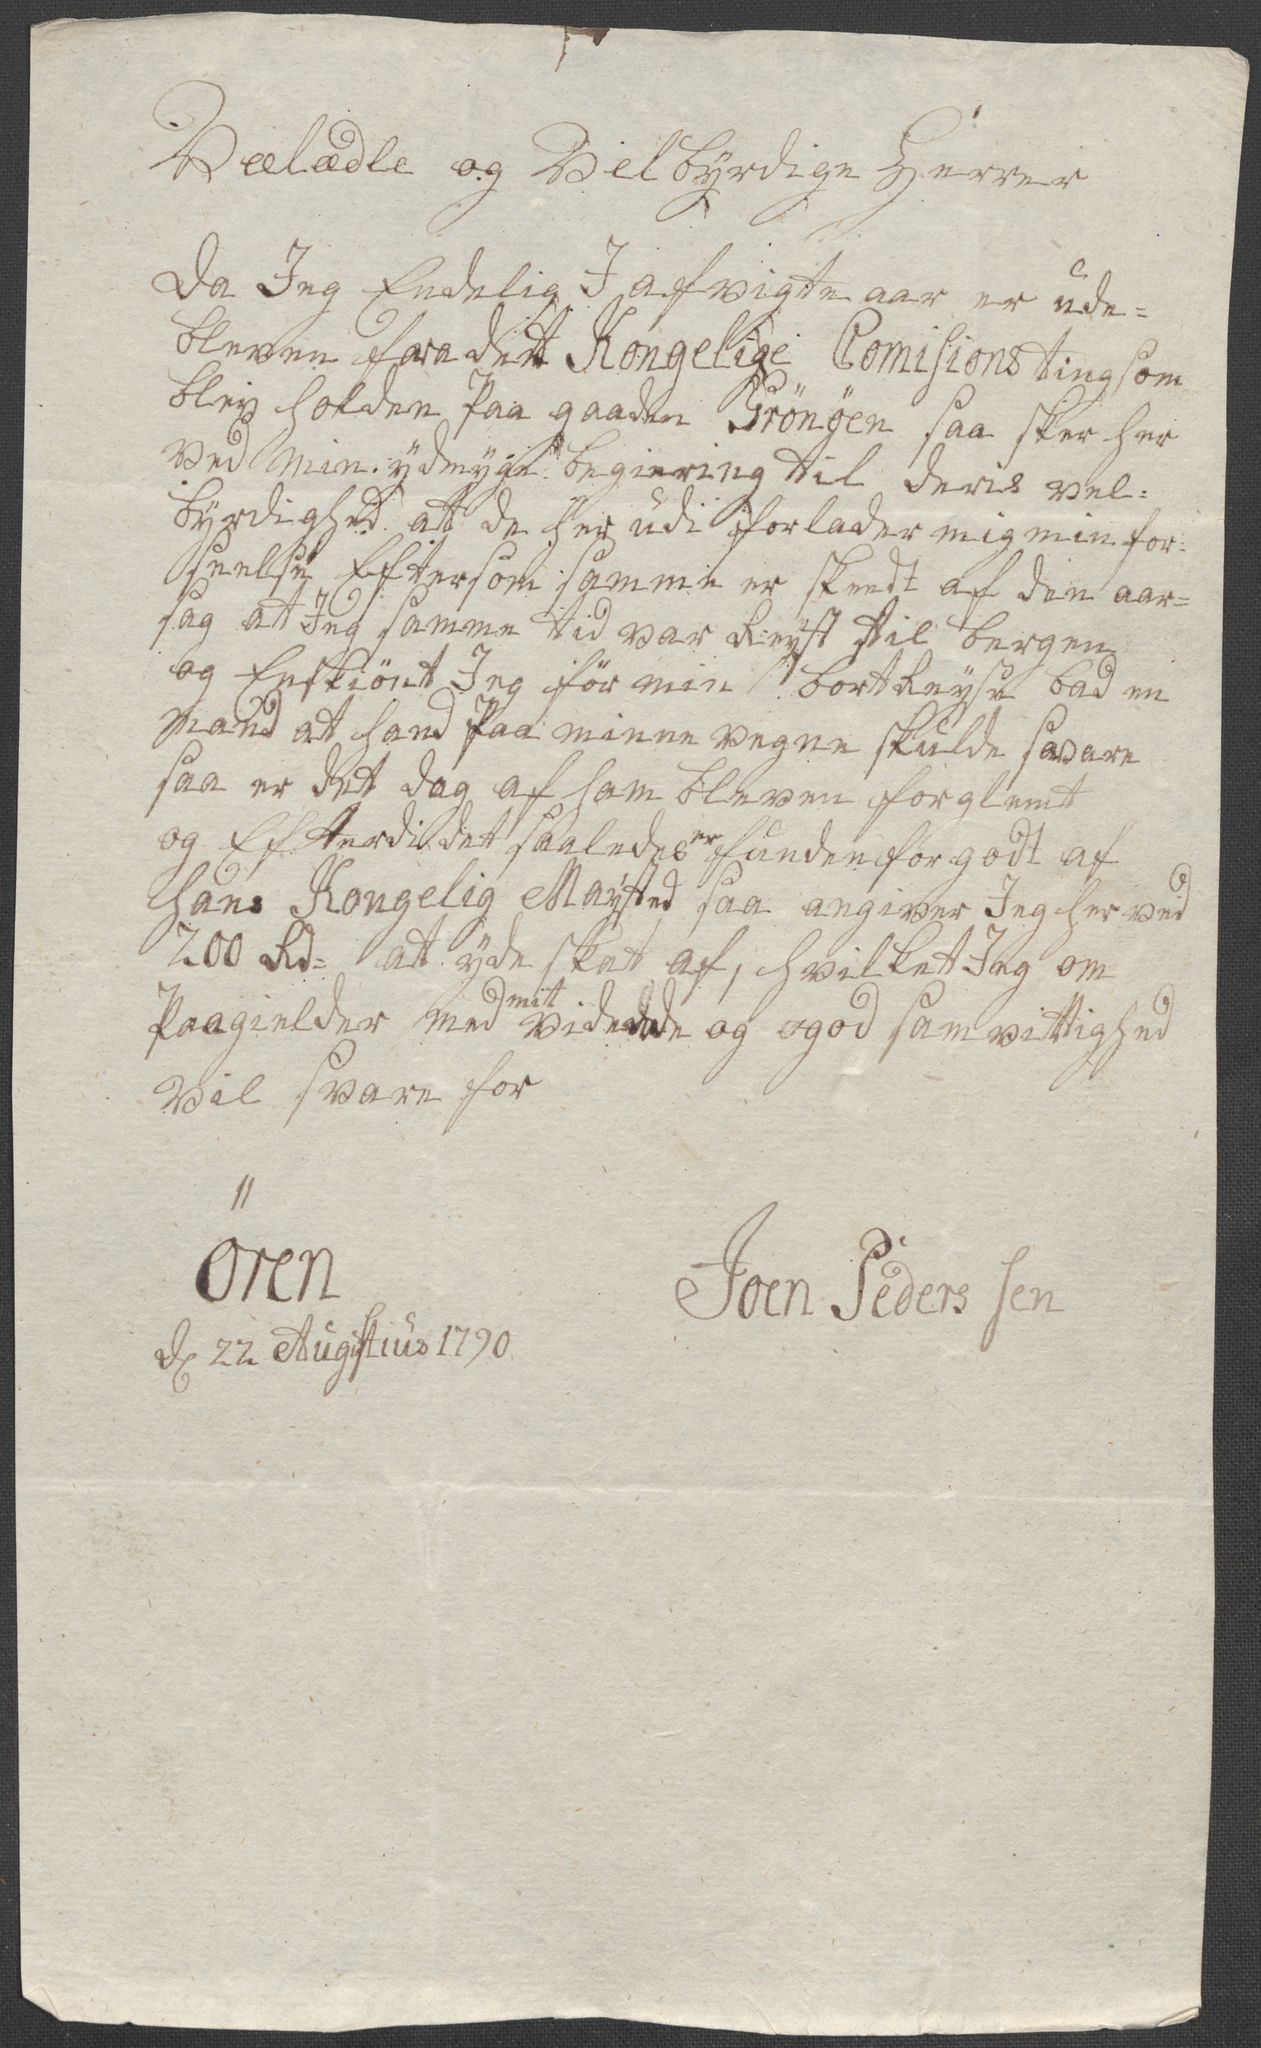 Vælædle og Velbÿrdige Herrer
Da Jeg Endelig J afvigte aar er ude=
bleven fara dett Kongelige Comisions ting som
blev holden Paa gaaden Gröngen saa sker her
ved min ÿdmÿge begiering til deris vel=
bÿrdighed at de her udi forlader mig min for=
seelse Eftersom samme er skeedt af den aar=
sag at Jeg samme tid var Reÿst til bergen
og Enskiönt Jeg för min bortReÿse bad en
Mand at hand Paa minne vegne skulde svare
saa er det dog af ham bleven forglemt
og Efterdi det saaledes er funden for godt af
Hans Kongelig Maÿsted saa angiver Jeg her ved
200 Rd= at ÿde skat af, hvilket Jeg om
Paagielder med mit vidende og ogod samvittighed
vil svare for
Ören
Joen Peders sen
d 22 Augustius 1790